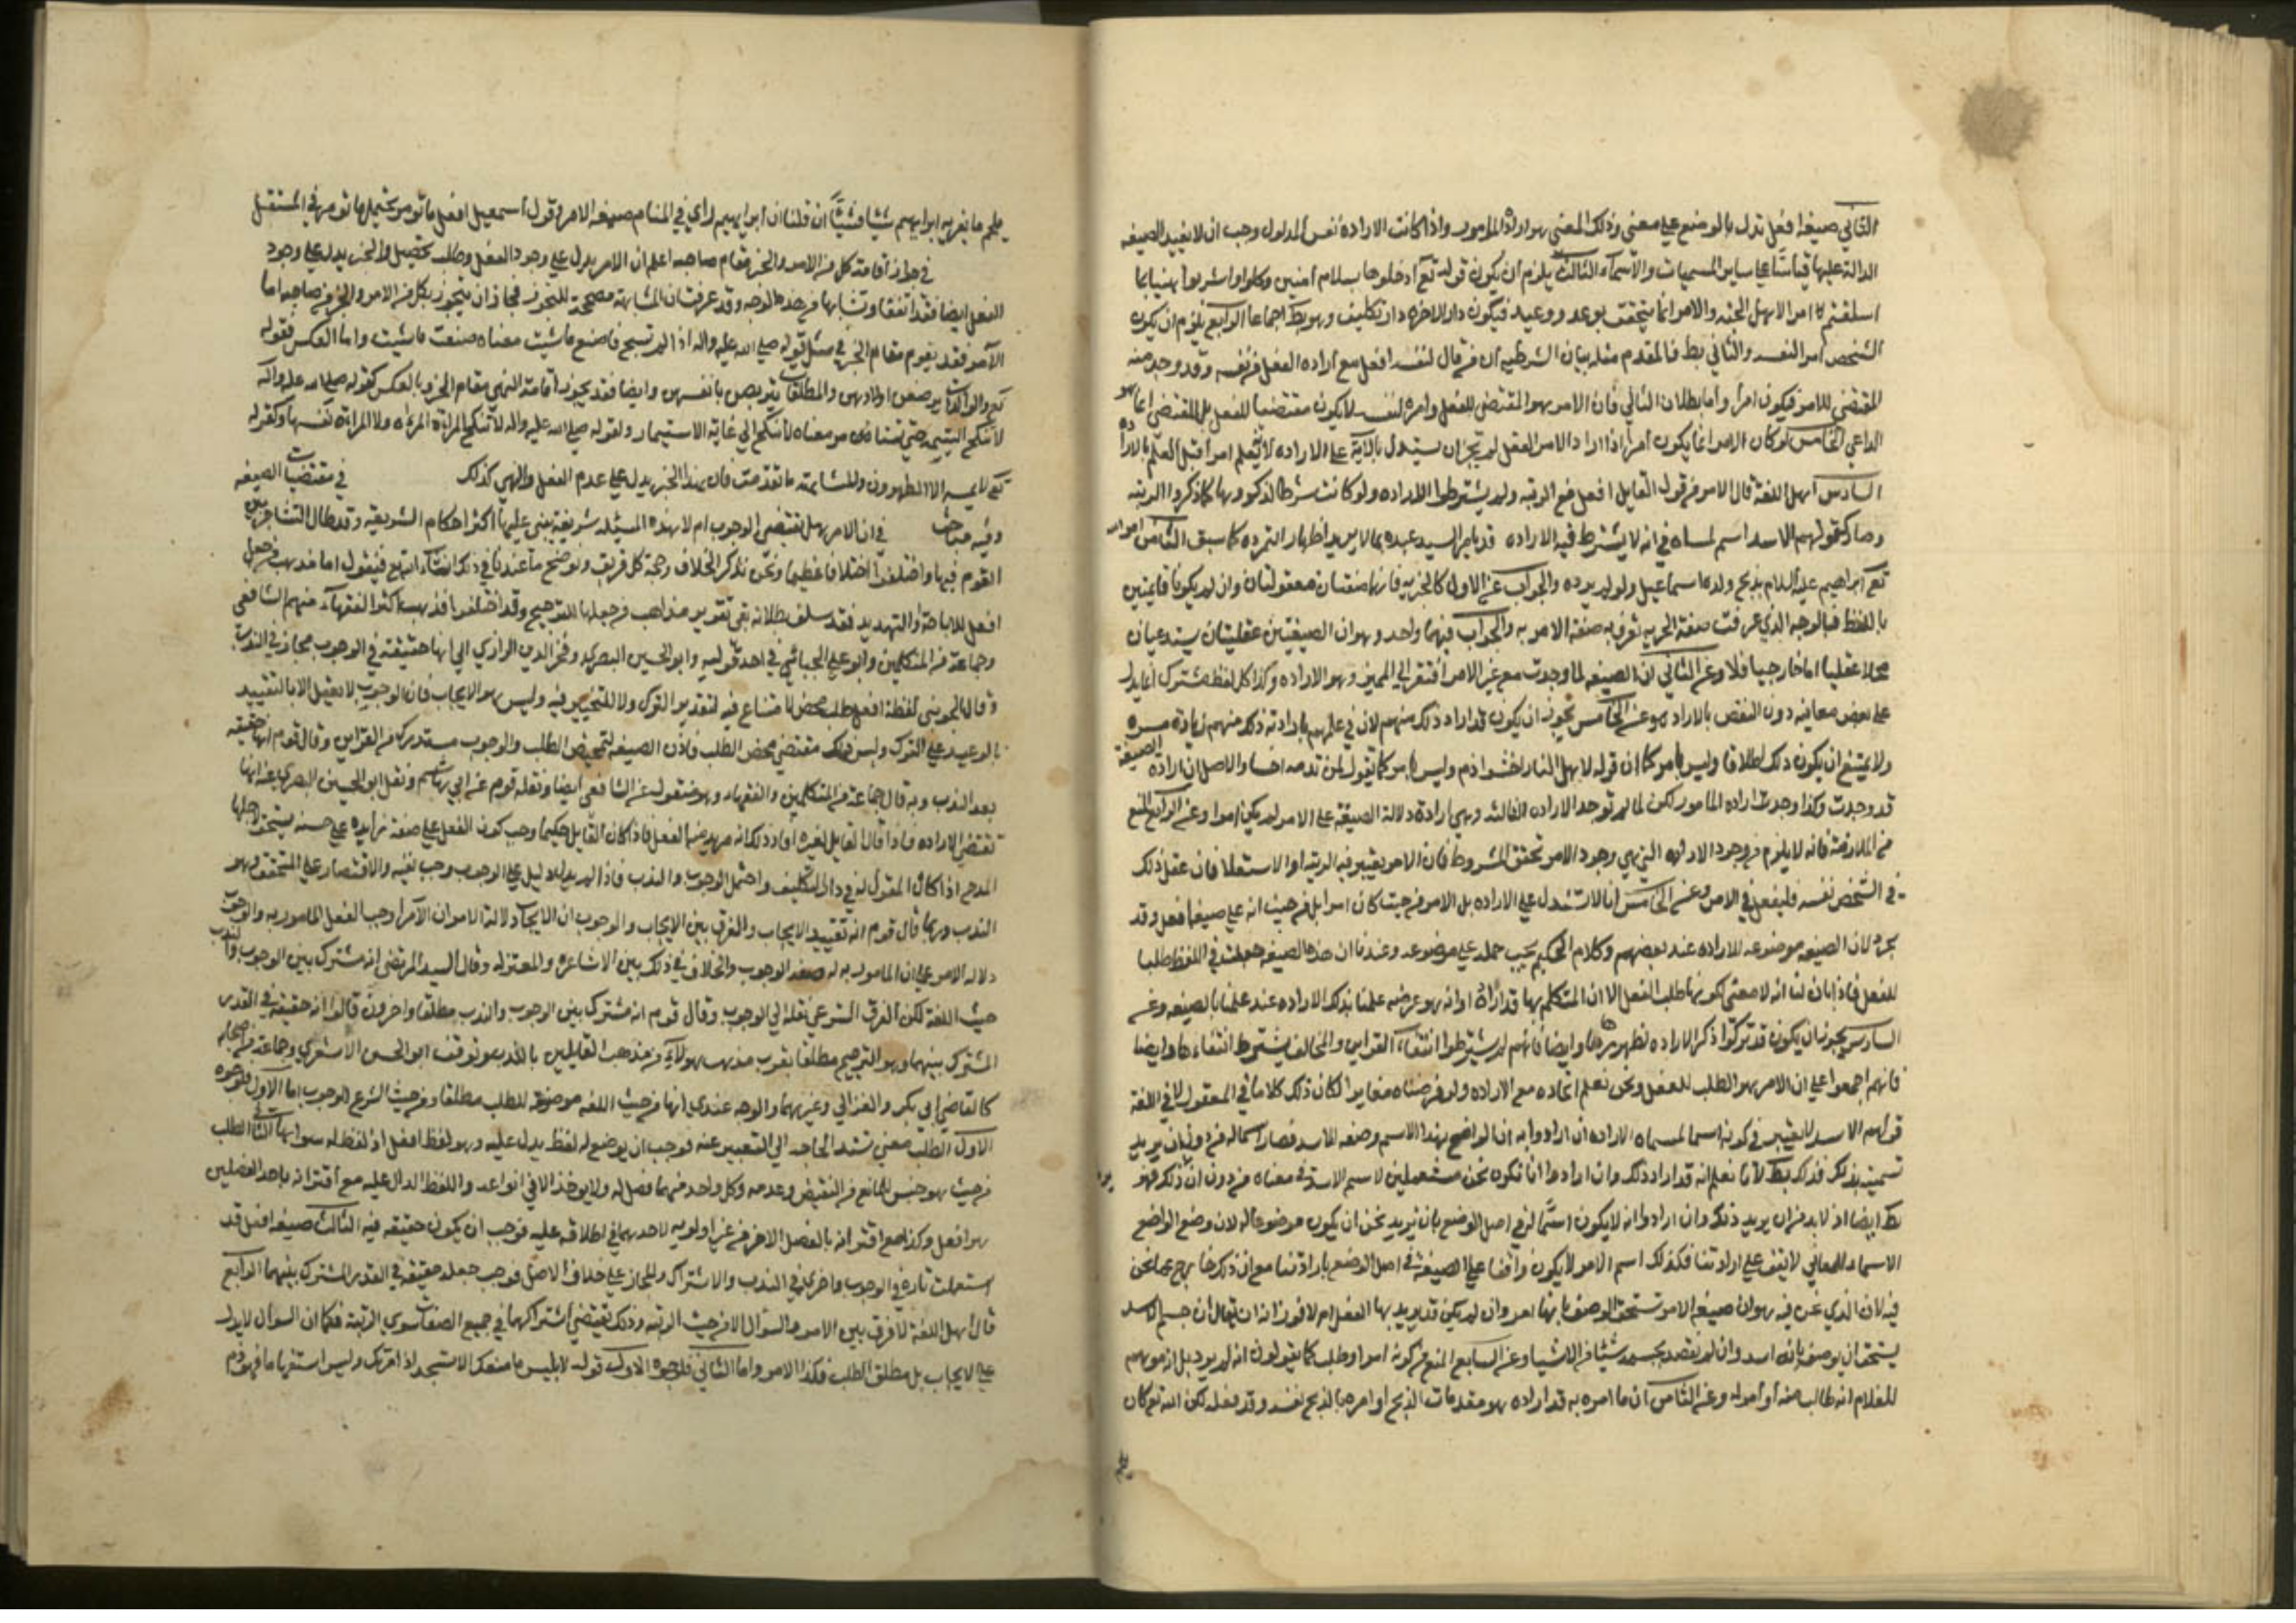 الثاني صيغة افعل تدل بالوضع على معنى وذلك المعنى هو ارادة المامور واذا كانت الاراده نفس المدلول وجب ان لا يفيد الصيغه
الدالة عليها قياسا على ساير المسميات والاسماء الثالث يلزم ان يكون قوله تع ادخلوها بسلام امنين وكلوا واشربوا هنيا بما
اسلفتم امرا لاهل الجنه والامر انما يتحقق بوعد ووعيد فيكون دار الاخرة دار تكليف وهو بط اجماعا الرابع يلزم ان يكون
الشخص امر النفسه والثاني بط فالمقدم مثله بيان الشرطيه ان من قال لنفسه افعل مع اراده الفعل من نفسه وقد وجد منه
المقتضي للامر فيكون امرا واما بطلان الثاني فان الامر هو المقتضي للفعل وامره لنفسه لا يكون مقتضيا للفعل بل المقتضي انما هو
الداعي الخامس لو كان الامر انما يكون امرا اذا اراد الامر الفعل لم يجز ان يستدل بالامر على الاراده لانا لا نعلم امرا قبل العلم بالاراده
السادس اهل اللغة قالوا الامر قول القايل افعل مع الرتبه ولم يشترطوا الاراده ولو كانت شرطا لذكروها كما ذكروا الرتبه
وصار كقولهم الاسد اسم لمسماه في انه لا يشترط فيه الاراده قد يامر السيد عبده بما لا يريد اظهار التمرده كما سبق الثامن امر الله
تع ابراهيم عليه السلام بذبح ولده اسماعيل ولم يرده والجواب عن الاول كالخبريه فانها صفتان معقولتان وان لم يكونا قايمتين
باللفظ فبالوجه الذي عرفت صفة الخبريه تعرف به صفة الامريه والجواب فيهما واحد وهو ان الصيغتين عقليتان يستدعيان
محلا عقليا اما خارجيا فلا وعن الثاني ان الصيغه لما وجدت مع غير الامر افتقر الى المميز وهو الاراده وكذا كل لفظ مشترك انما يدل
على بعض معانيه دون البعض بالاراده وعن الخامس يجوز ان يكون قد اراد ذلك منهم لان في علمهم بارادته ذلك منهم زيادة مسرة
ولا يمتنع ان يكون ذلك اطلاقا وليس بامر كما ان قوله لاهل النار اخسئوا ذم وليس بامر كما تقول لمن تذمه اخسا والاصل ان ارادة الصيغة
قد وجدت وكذا وجدت اراده المامور لكن لما لم توجد الاراده الثالثه وهي ارادة دلالة الصيغة على الامر لم يكن امرا وعن الرابع المنع
من الملازمة فانه لا يلزم من وجود الاراده التي هي وجود الامر تحقق المشروط فان الامر يعتبر فيه الرتبه او الاستعلا فان عقل ذلك
في الشخص نفسه فليعقل في الامر وعن الخامس انا لا نستدل على الاراده بل الامر من حيث كان امرا بل من حيث انه على صيغه افعل وقد
تجرد لان الصيغه موضوعه للاراده عند بعضهم وكلام الحكيم يجب حمله على موضوعه وعندنا ان هذه الصيغه جعلت في اللغة طلبا
للفعل فاذا بان لنا انه لا معنى لكونها طلب الفعل الا ان المتكلم بها قد اراده او انه هو غرضه علمنا بذلك الاراده عند علمنا بالصيغه وعن
السادس يجوز ان يكون قد تركوا ذكر الاراده لظهورها وايضا فانهم لم يشترطوا انتفاء القراين والمخالف يشترط انتفاءها وايضا
فانهم اجمعوا على ان الامر هو الطلب للفعل ونحن نعلم اتحاده مع الاراده ولو فرضناه مغايرا لكان ذلك كلاما في المعقول لا في اللغة
قولهم الاسد لا يعتبر في كونه اسما لمسماه الاراده ان ارادوا به ان الواضع لهذا الاسم وضعه للاسد فصار اسما له من دون ان يريد
تسميته بذلك فذلك بط لانا نعلم انه قد اراد ذلك وان ارادوا انا نكون نحن مستعملين لاسم الاسد في معناه من دون ان نريد ذلك فهو
بط ايضا اذ لا بد من ان يريد ذلك وان ارادوا انه لا يكون اسما له في اصل الوضع بان نريد نحن ان يكون موضوعا له لان وضع الواضع
الاسماء للمعاني لا يقف على ارادتنا فكذلك اسم الامر لا يكون واقفا على الصيغة في اصل الوضع بارادتنا مع ان ذكر هنا خرج عما نحن
فيه لان الذي نحن فيه هو ان صيغه الامر تستحق الوصف بانها امر وان لم يكن قد يريد بها الفعل ام لا فوزانه ان يقال ان جسم الاسد
يستحق ان يوصف بانه اسد وان لم نقصد بجسمه شيئا من الاشيا وعن السابع المنع من كونه امرا وطلب كما يقولون انه لم يرد بل ازمو هم
للغلام انه طالب منه او امر له وعن الثامن ان ما امره به قد اراده هو مقدمات الذبح او امره بالذبح نفسه وقد فعله لكن الله تع كان
يلحم ما يفريه ابراهيم شيئا فشيئا ان قلنا ان ابراهيم راي في المنام صيغه الامر وقول اسمعيل افعل ما تؤمر يحتمل ما تومر في المستقبل
في جواز اقامة كل من الامر والخبر مقام صاحبه اعلم ان الامر يدل على وجود الفعل وطلب تحصيل والخبر يدل على وجود
الفعل ايضا فقد اتفقا وتشابها من هذا الوجه وقد عرفت ان المشابهة مصححة للتجوز فجاز ان يتجوز بكل من الامر والخبر عن صاحبه اما
الامر فقد يقوم مقام الخبر في مثل قوله صلى الله عليه واله اذا لم تستحي فاصنع ما شيت معناه صنعت ما شيت واما العكس فقوله
تع والوالدات يرضعن اولادهن والمطلقات يتربصن بانفسهن وايضا فقد يجوز اقامة النهي مقام الخبر وبالعكس كقوله صلى الله عليه واله
لا تنكح اليتيمه حتى تستامر معناه لا تنكح الى غاية الاستيمار ولقوله صلى الله عليه واله لا تنكح المراة المراة ولا المراة نفسها وكقوله
تع لا يمسه الا المطهرون والمشابهة ما تقدمت فان هذا الخبر يدل على عدم الفعل والنهي كذلك في مقتضيات الصيغه
وفيه مباحث في ان الامر هل يقتضي الوجوب ام لا هذه المسئله شريفة يبتني عليها اكثر احكام الشريعه وقد طال التشاجر بين
القوم فيها واختلفوا اختلافا عظيما ونحن نذكر الخلاف وحجة كل فريق ونوضح ما عندنا في ذلك انشاء الله تع فنقول اما مذهب من جعل
افعل للاباحة والتهديد فقد سلف بطلانه بقي تقرير مذاهب من جعلها للترجيح وقد اختلفوا فذهب اكثر الفقهاء منهم الشافعي
وجماعة من المتكلمين وابو علي الجبائي في احد قوليه وابو الحسين البصري وفخر الدين الرازي الى انها حقيقة في الوجوب مجاز في الندب
وقال الجويني لفظة افعل طلب محض لا مساغ فيه لتقدير الترك ولا للتخيير فيه وليس هو الايجاب فان الوجوب لا يعقل الا بالتقييد
بالوعيد على الترك وليس ذلك مقتضي محض الطلب فاذن الصيغه لتمحيض الطلب والوجوب مستدرك من القراين وقال قوم انها حقيقه
بعد الندب وبه قال جماعة من المتكلمين والفقهاء وهو منقول عن الشافعي ايضا ونقله قوم عن ابي هاشم ونقل ابو الحسين البصري عنه انها
تقتضي الاراده فاذا قال القايل لغيره افعل افاد ذلك انه مريد منه الفعل فاذا كان القايل حكيما وجب كون الفعل على صفة زايده على حسنه يستحق لاجلها
المدح اذا كان المقول له في دار التكليف واحتمل الوجوب والندب فاذا لم يدل دليل على الوجوب وجب نفيه والاقتصار على المتحقق وهو
الندب وربما قال قوم انه يقتضي الايجاب والفرق بين الايجاب والوجوب ان الايجاب دلالة الامر ان الامر اوجب الفعل المامور به والوجوب
دلالة الامر على ان المامور به له صفة الوجوب والخلاف في ذلك بين الاشاعره والمعتزله وقال السيد المرتضى انه مشترك بين الوجوب والندب من
حيث اللغة لكن العرف الشرعي نقله الى الوجوب وقال قوم انه مشترك بين الوجوب والندب مطلقا واخرون قالوا انه حقيقة في القدر
المشترك بينهما وهو الترجيح مطلقا بقرب مذهب هولاء من مذهب القايلين بالندب وتوقف ابو الحسن الاشعري وجماعة من اصحابه
كالقاضي ابي بكر والغزالي وغيرهما والوجه عندي انها من حيث اللغه موضوعة للطلب مطلقا ومن حيث الشرع للوجوب اما الاول فلوجوه
الاول الطلب معنى تشتد الحاجه الى التعبير عنه فوجب ان يوضع له لفظ يدل عليه وهو لفظ افعل اذ لا لفظ له سواها الثاني الطلب
من حيث هو جنس للمانع من النقيض وعدمه وكل واحد منهما فصل له ولا يوخذ الا في انواعه واللفظ الدال عليه مع اقترانه باحد الفصلين
هو افعل وكذا مع اقترانه بالفصل الاخر من غير اولويه لاحدهما في اطلاقه عليه فوجب ان يكون حقيقه فيه الثالث صيغه افعل قد
استعملت تارة في الوجوب واخرى في الندب والاشتراك والمجاز على خلاف الاصل فوجب جعله حقيقة في القدر المشترك بينهما الرابع
قال اهل اللغة لا فرق بين الامر والسؤال الا من حيث الرتبه وذلك يقتضي اشتراكهما في جميع الصفات سوى الرتبة فكما ان السوال لا يدل
على الايجاب بل مطلق الطلب فكذا الامر واما الثاني فلوجوه الاول قوله لابليس ما منعك الا تسجد اذ امرتك وليس استفهاما فهو ذم